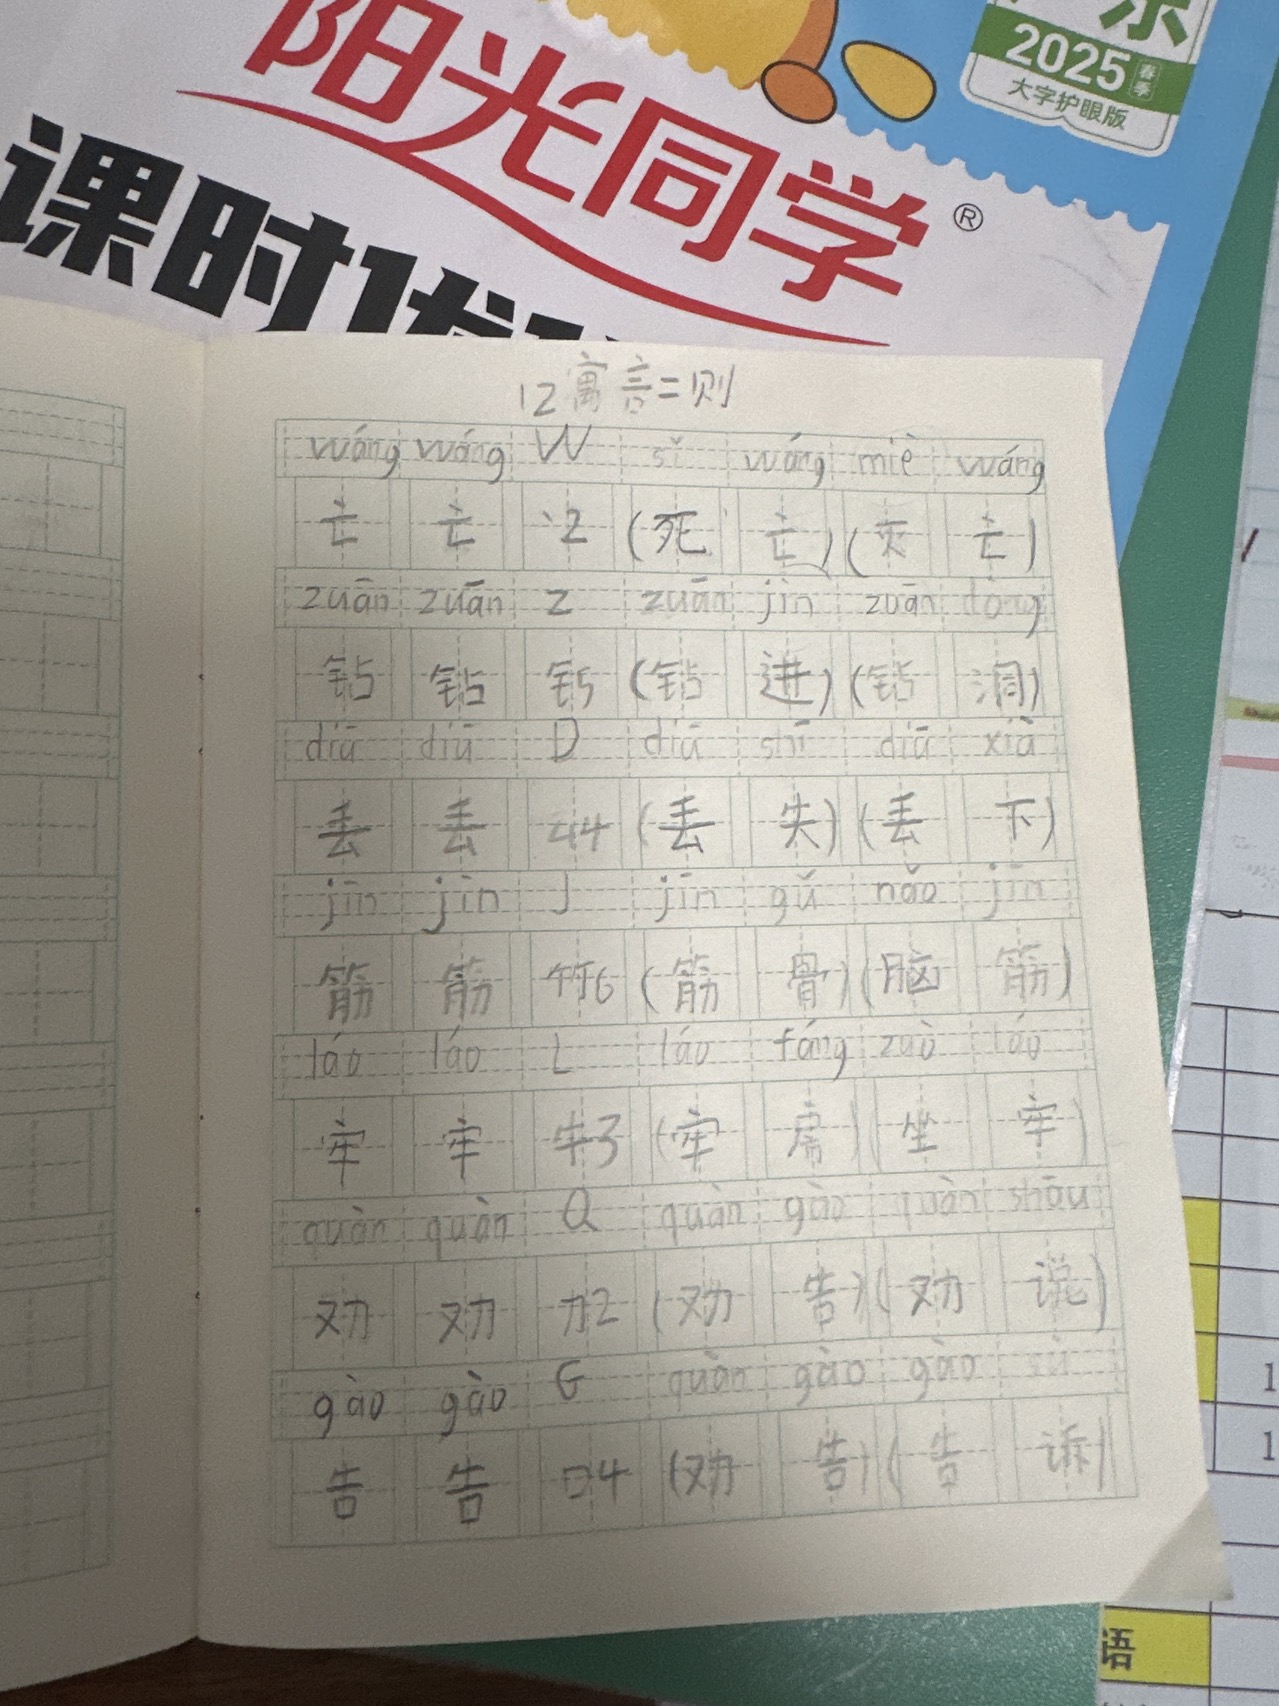 东
2025 春季
大字护眼版
阳光同学®
课时优
12寓言二则
wáng wáng W sǐ wáng miè wáng
亡 亡 亠2 (死 亡) (灭 亡)
zuān zuān Z zuān jìn zuān dòng
钻 钻 钅5 (钻 进) (钻 洞)
diū diū D diū shī diū xià
丢 丢 厶4 (丢 失) (丢 下)
jīn jīn J jīn gǔ nǎo jīn
筋 筋 竹6 (筋 骨) (脑 筋)
láo láo L láo fáng zuò láo
牢 牢 牛3 (牢 房) (坐 牢)
quàn quàn Q quàn gào quàn shāu
劝 劝 力2 (劝 告) (劝 说)
gào gào G quàn gào gào sù
告 告 口4 (劝 告) (告 诉)
1
1
语